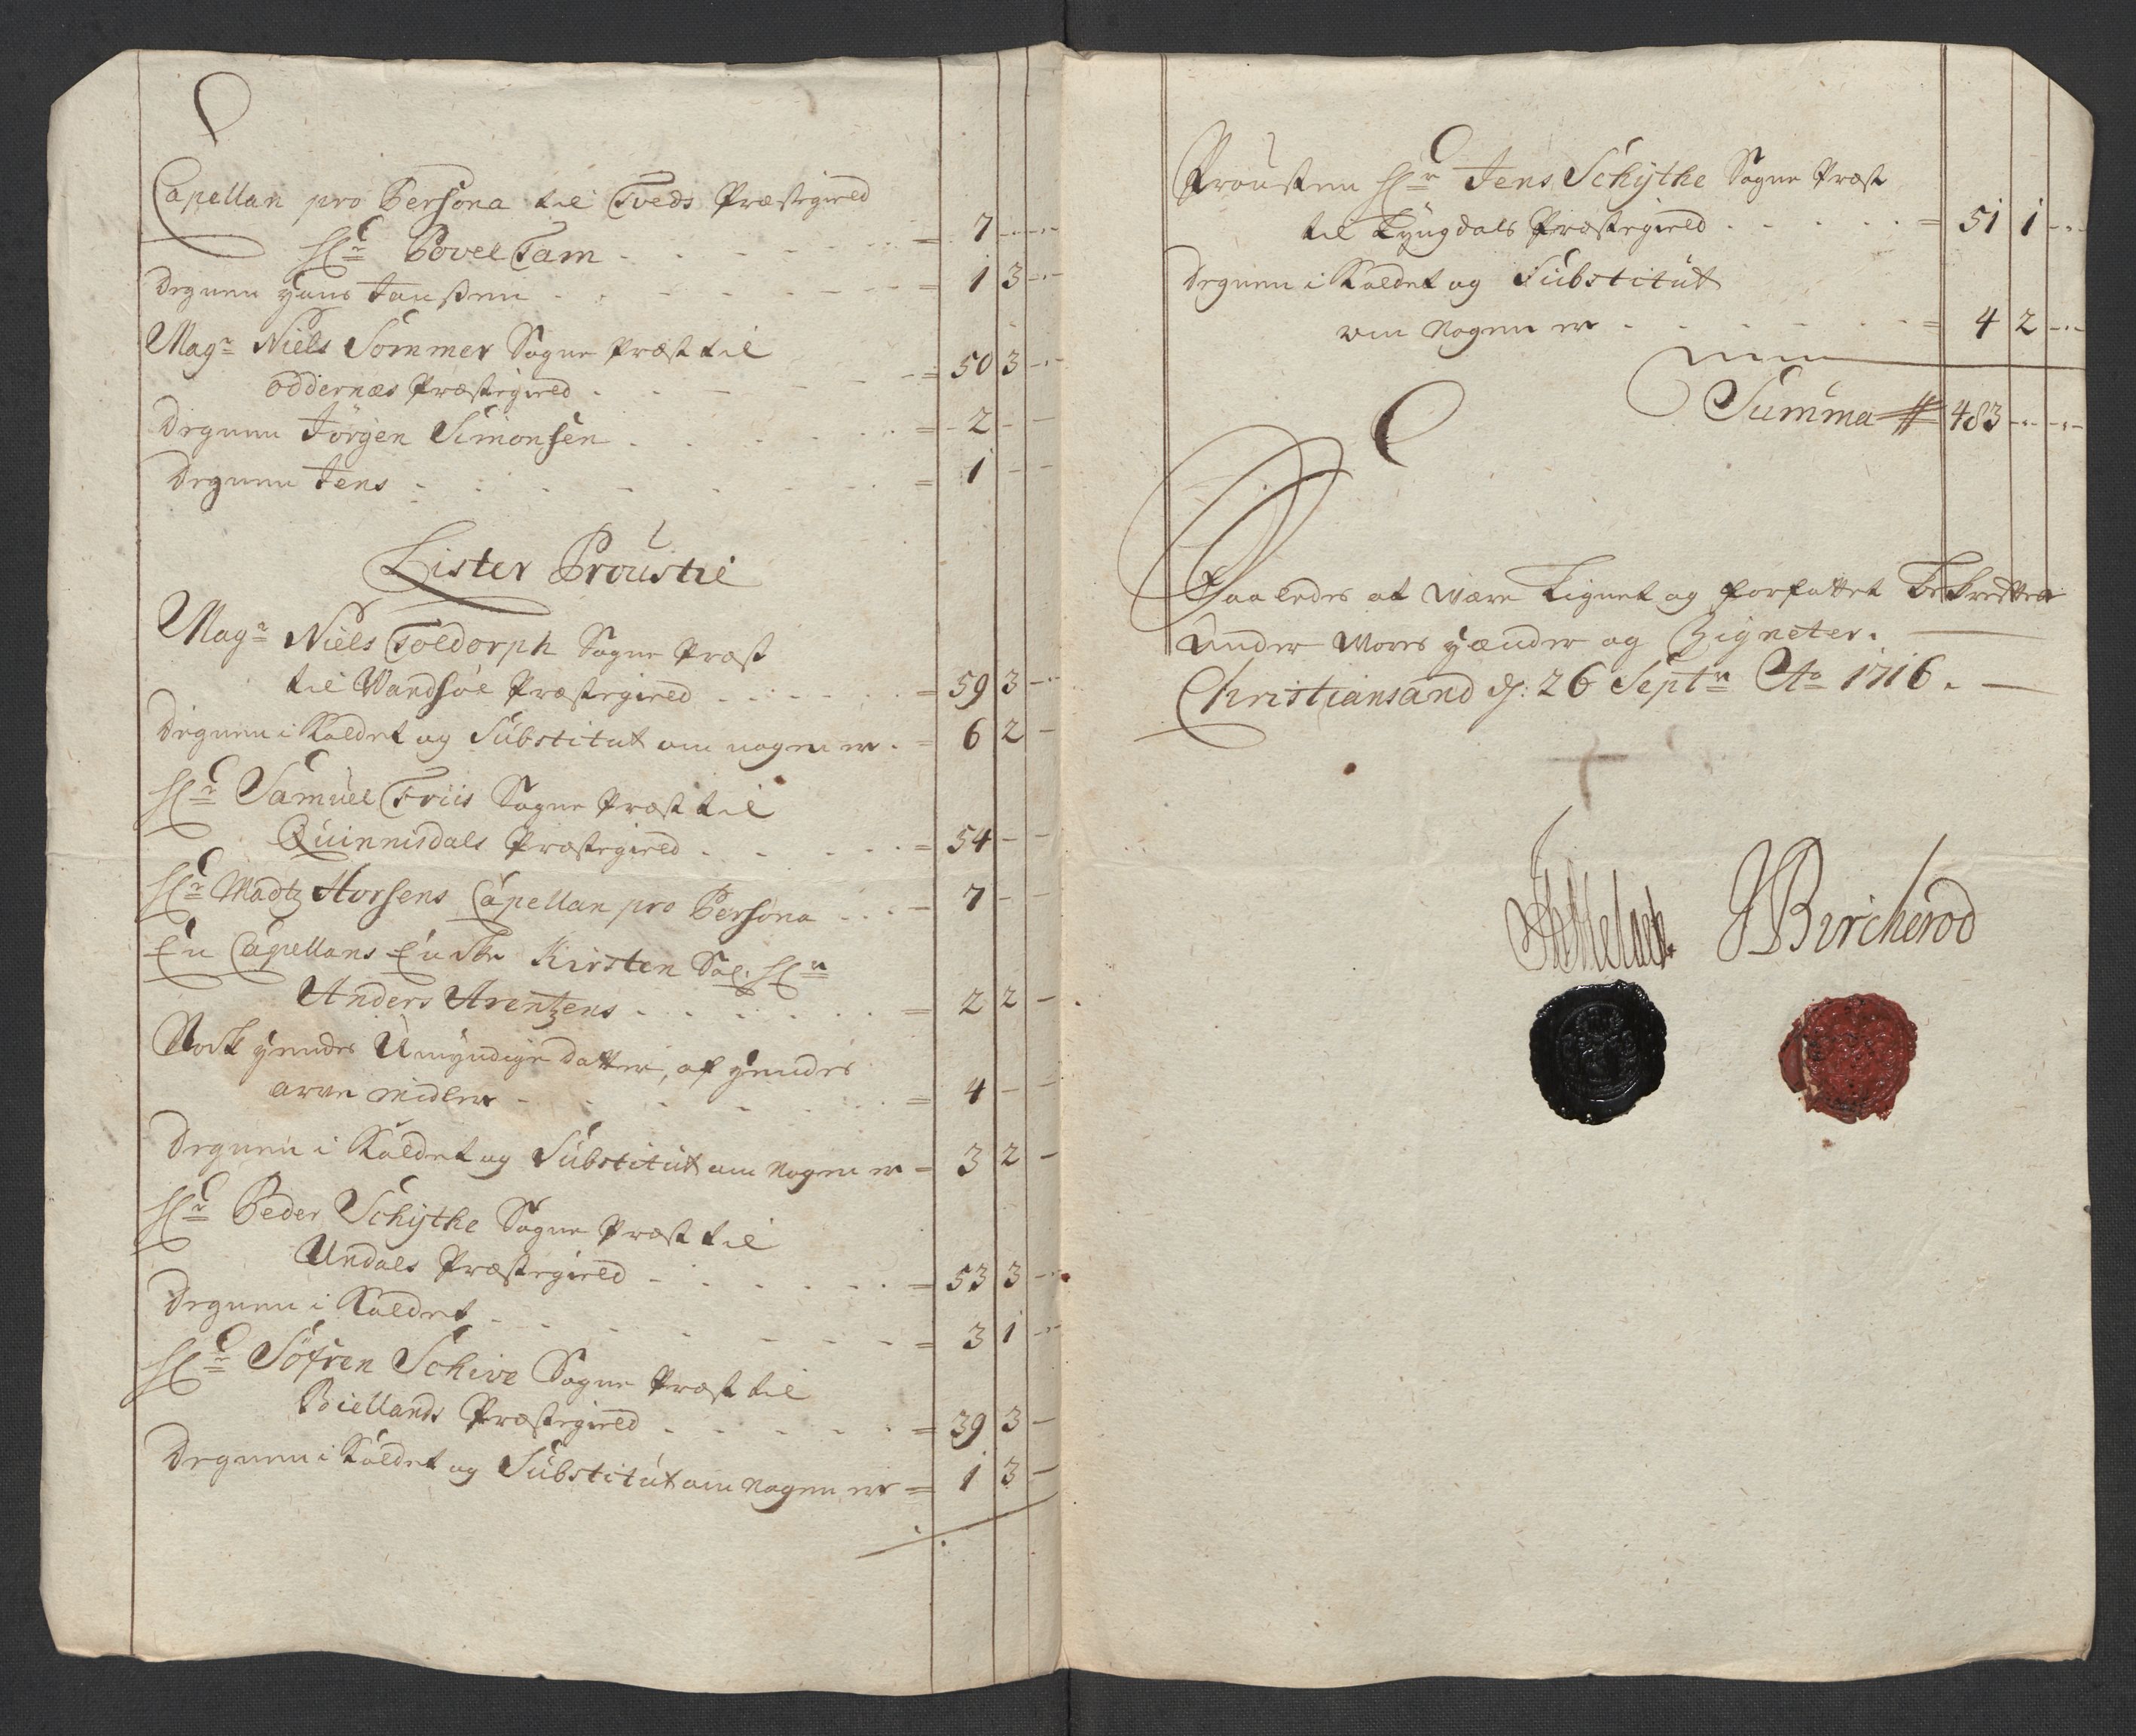 Capellan pro Persona til Tveds Præstegield
Hr Povel Tam - - - = 7 - -
Degnen Hans Janßen - - - = 1 3 -
Magr Niels Sommer Sogne Præst til
Oddernæs Præstegield - - - = 50 3 -
Degnen Jörgen Simonsen - - - = 2 - -
Degnen Jens - - - = 1 - -
Lister Proustie
Magr Niels Toldorph Sogne Præst
til Wandsöe Præstegield - - - = 59 3 -
Degnen i Kaldet og Substitut om nogen er = 6 2 -
Hr Samuel Friis Sogne Præst til
Quinnisdals Præstegield - - - = 54 - -
Hr Madtz Horsens Capellan pro Persona - - - 7 - -
En Capellans Encke Kirsten Sal: Hr
Anders Arentzens - - - = 2 2 -
Nock hendes Umyndige datter, af hendes
arve midler - - - = 4 - -
Degnen i Kaldet og Substitut om nogen er = 3 2 -
Hr Peder Schythe Sogne Præst til
Undals Præstegield - - - = 53 3 -
Degnen i Kaldet - - - = 3 1 -
Hr Söfren Schive Sogne Præst til
Biellands Præstegield - - - = 39 3 -
Degnen i Kaldet og Substitut om nogen er = 1 3 -
Prousten Hr Jens Schythe Sogne Præst
til Lyngdals Præstegield - - - = 51 1 -
Degnen i Kaldet og Substitut
om nogen er - - - = 4 2 -
Summa 483 - -
Saaledes at være Lignet og forfattet Bekrefter
under Vores hænder og Zigneter.
Christiansand d: 26 Septr Ao 1716.
JBircherod